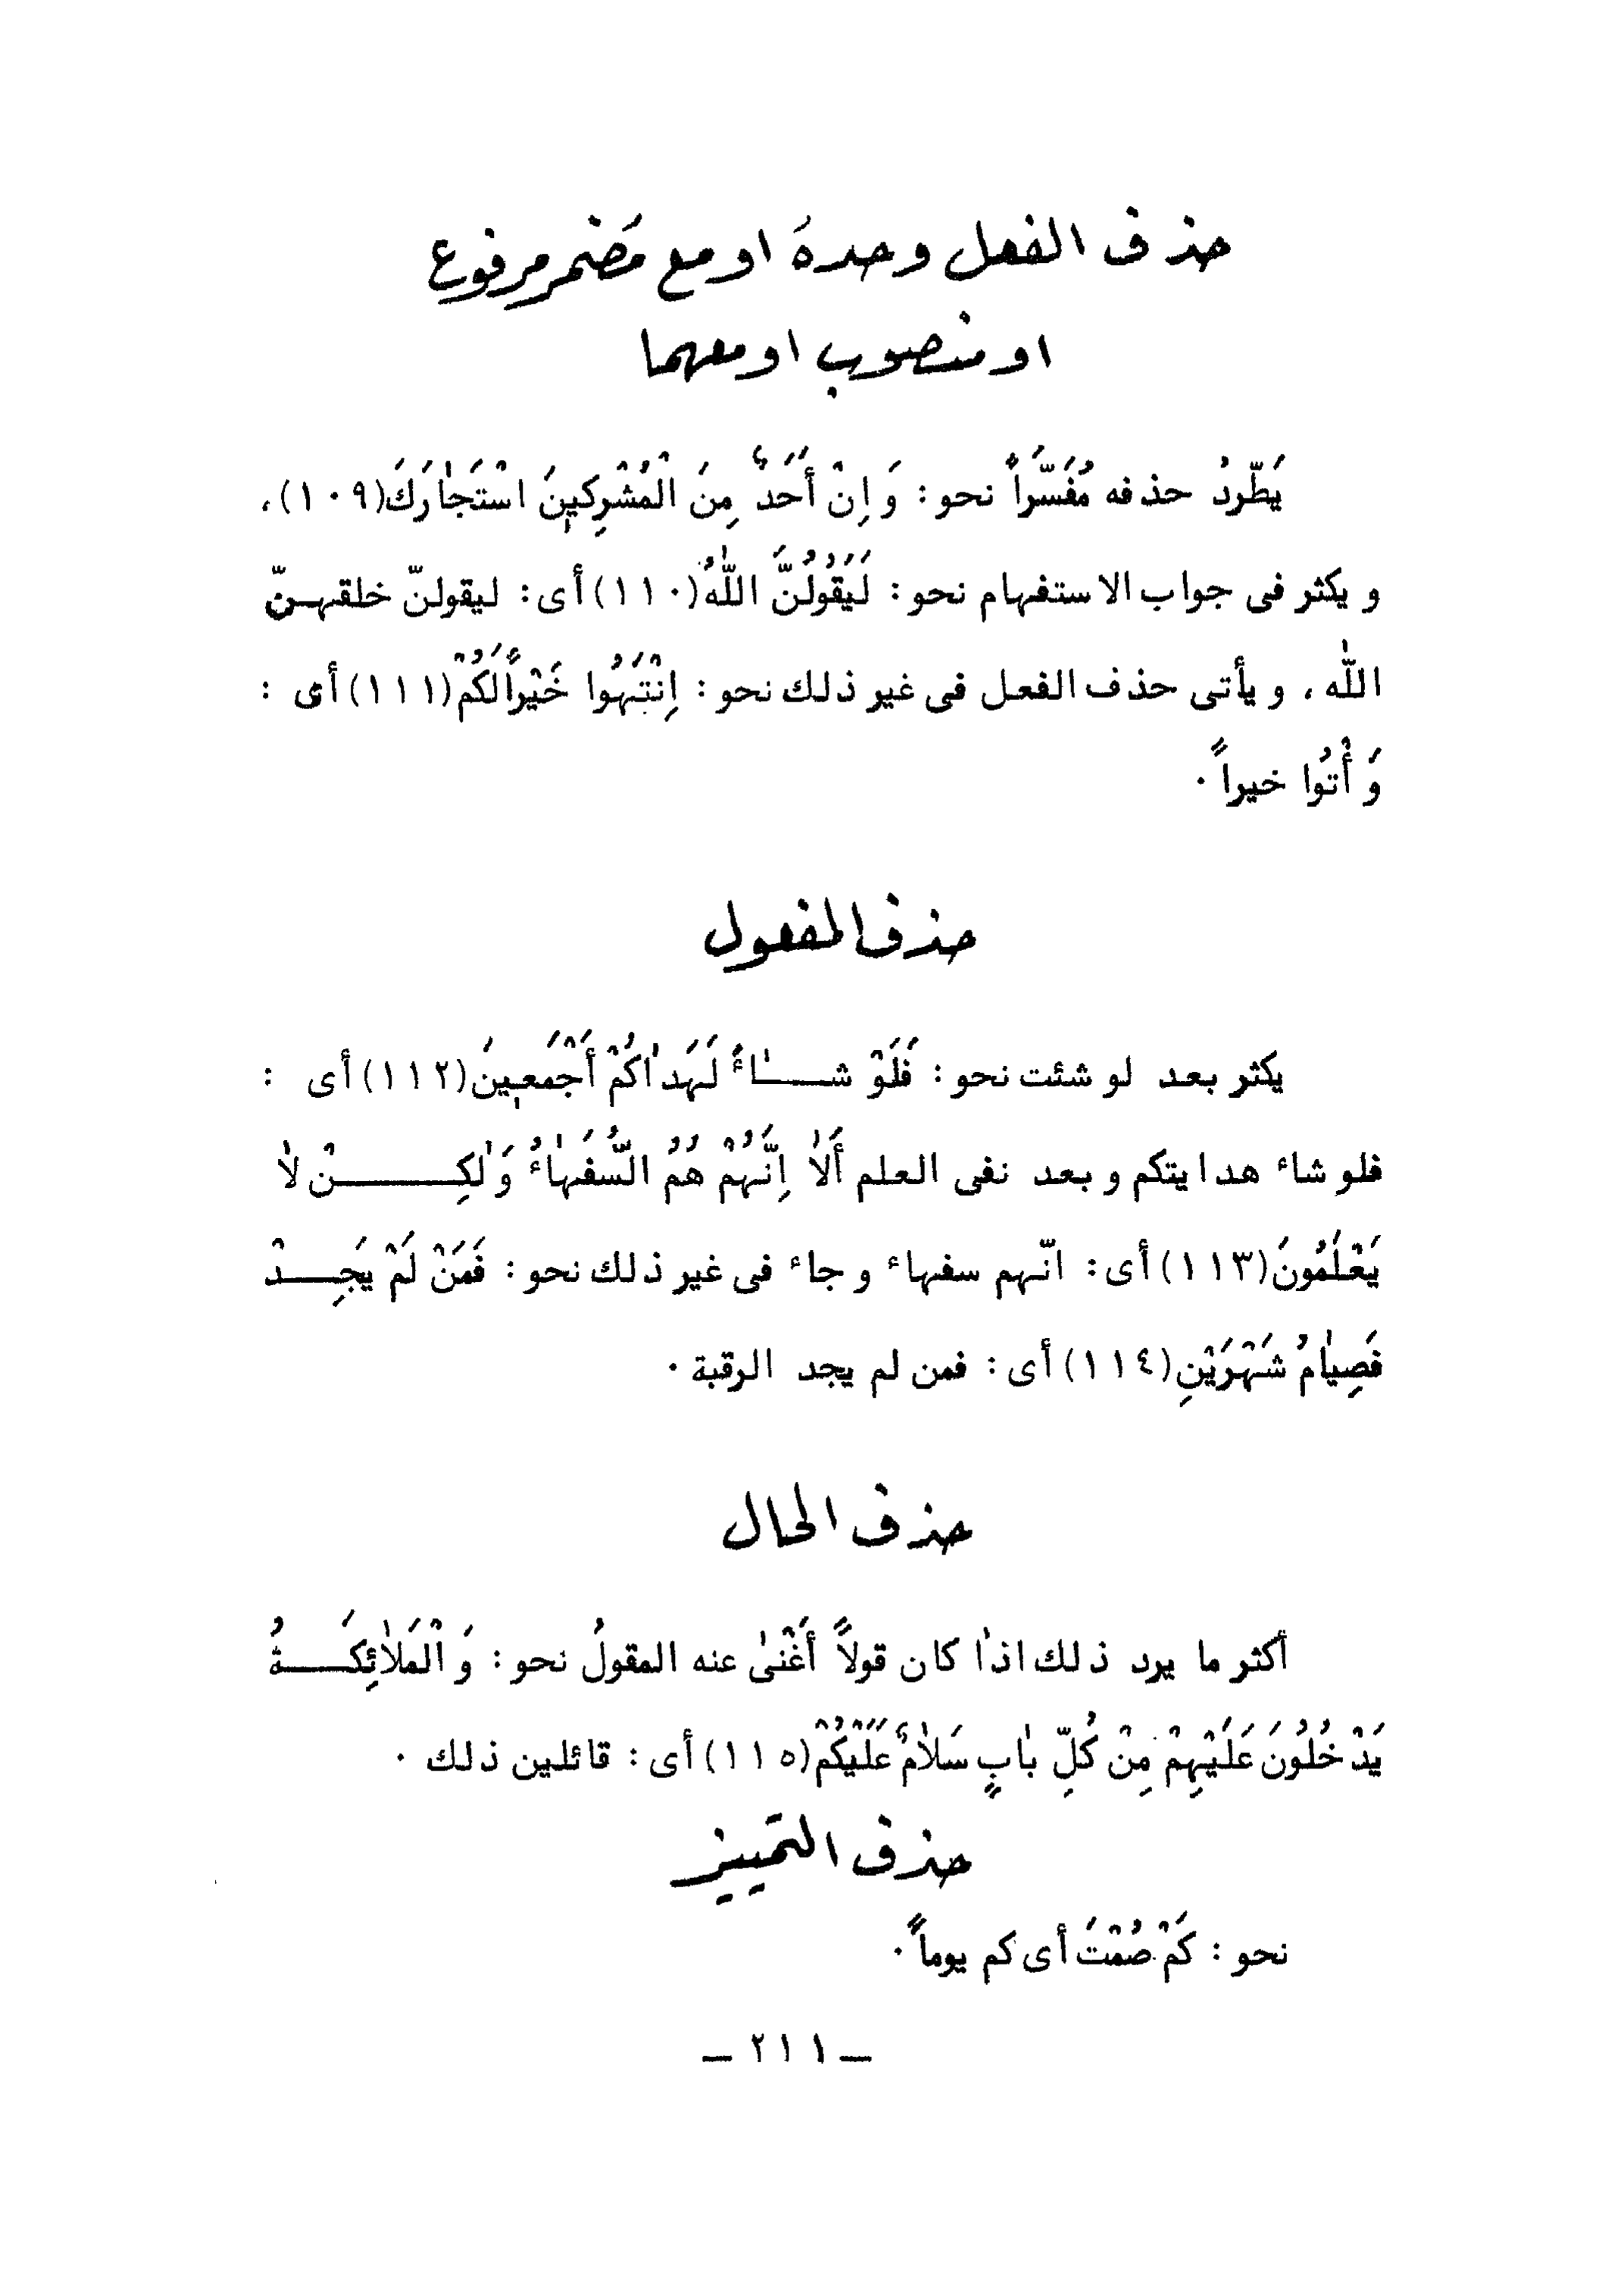 حذف الفعل وحدهَ او مع مَضمر مرفوع
او منصوب او معهما
يَطَّرِدُ حذفه مُفَسَّراً نحو : وَ إِنْ أَحَدٌ مِنَ الْمُشْرِكِينَ اسْتَجٰارَكَ(١٠٩)،
و يكثر فى جواب الاستفهام نحو : لَيَقُولُنَّ اللّٰهُ(١١٠) أى : ليقولنّ خلقهـنّ
اللّٰه ، و يأتى حذف الفعل فى غير ذلك نحو : اِنْتَهُوا خَيْراًلَكُمْ(١١١) أى :
وَ أْتُوا خيراً .
حذف المفعول
يكثر بعد لو شئت نحو : فَلَوْ شـــٰاءَ لَهَدٰاكُمْ أَجْمَعِينَ(١١٢) أى :
فلو شاء هدايتكم و بعد نفى العلم أَلاٰ اِنَّهُمْ هُمُ السُّفَهٰاءُ وَ لٰكِـــــنْ لاٰ
يَعْلَمُونَ(١١٣) أى : انّهم سفهاء و جاء فى غير ذلك نحو : فَمَنْ لَمْ يَجِــدْ
فَصِيٰامُ شَهْرَيْنِ(١١٤) أى : فمن لم يجد الرقبة .
حذف الحال
أكثر ما يرد ذلك اذٰا كان قولاً أَغْنىٰ عنه المقولُ نحو : وَ الْمَلاٰئِكَـــةُ
يَدْخُلُونَ عَلَيْهِمْ مِنْ كُلِّ بٰابٍ سَلاٰمٌ عَلَيْكُمْ(١١٥) أى : قائلين ذلك .
حذف التمييز
نحو : كَمْ صُمْتَ أى كم يوماً .
ـ ٢١١ ـ